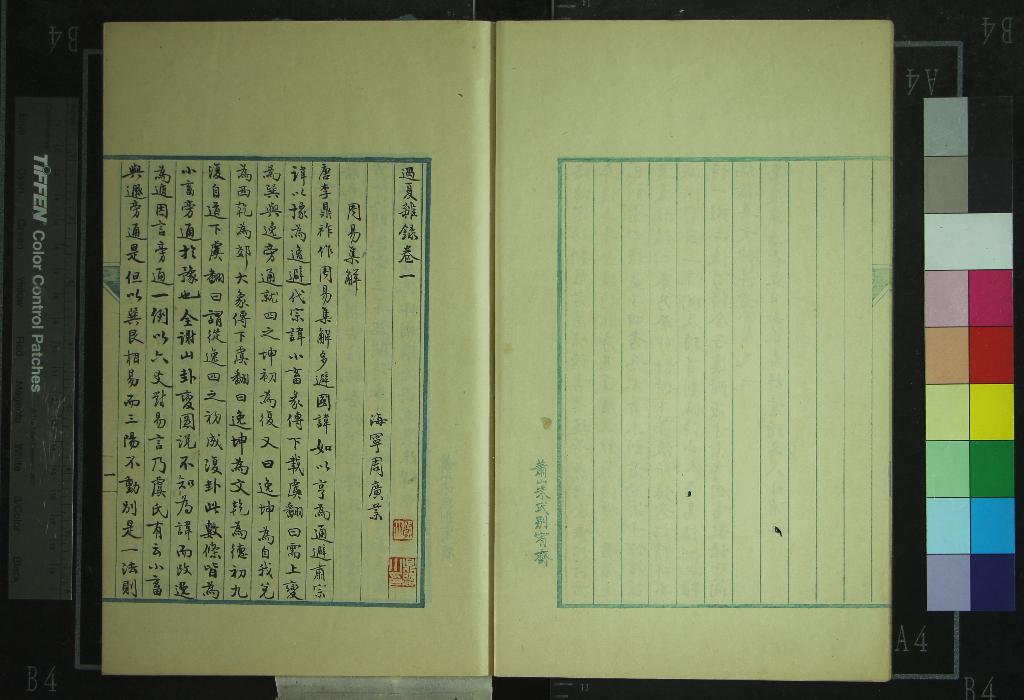 過夏雜錄卷一
海寧周廣業
周易集解
唐李鼎祚作周易集解多避國諱如以亨為通避肅宗
諱以豫為逸避代宗諱小畜彖傳下載虞翻曰需上變
為巽與逸旁通就四之坤初為復又曰逸坤為自我兌
為西乾為郊大象傳下虞翻曰逸坤為文乾為德初九
復自道下虞翻曰謂從逸四之初成復卦此數條皆為
小畜旁通於豫也全謝山卦變圖說不知為諱而改逸
為遁因言旁通一例以六爻對易言乃虞氏有云小畜
與遯旁通是但以巽艮相易而三陽不動別是一法則
一
蕭山朱氏別宥齋
TIFFEN Color Control Patches
B4
A4
B4
B4
A4
B4